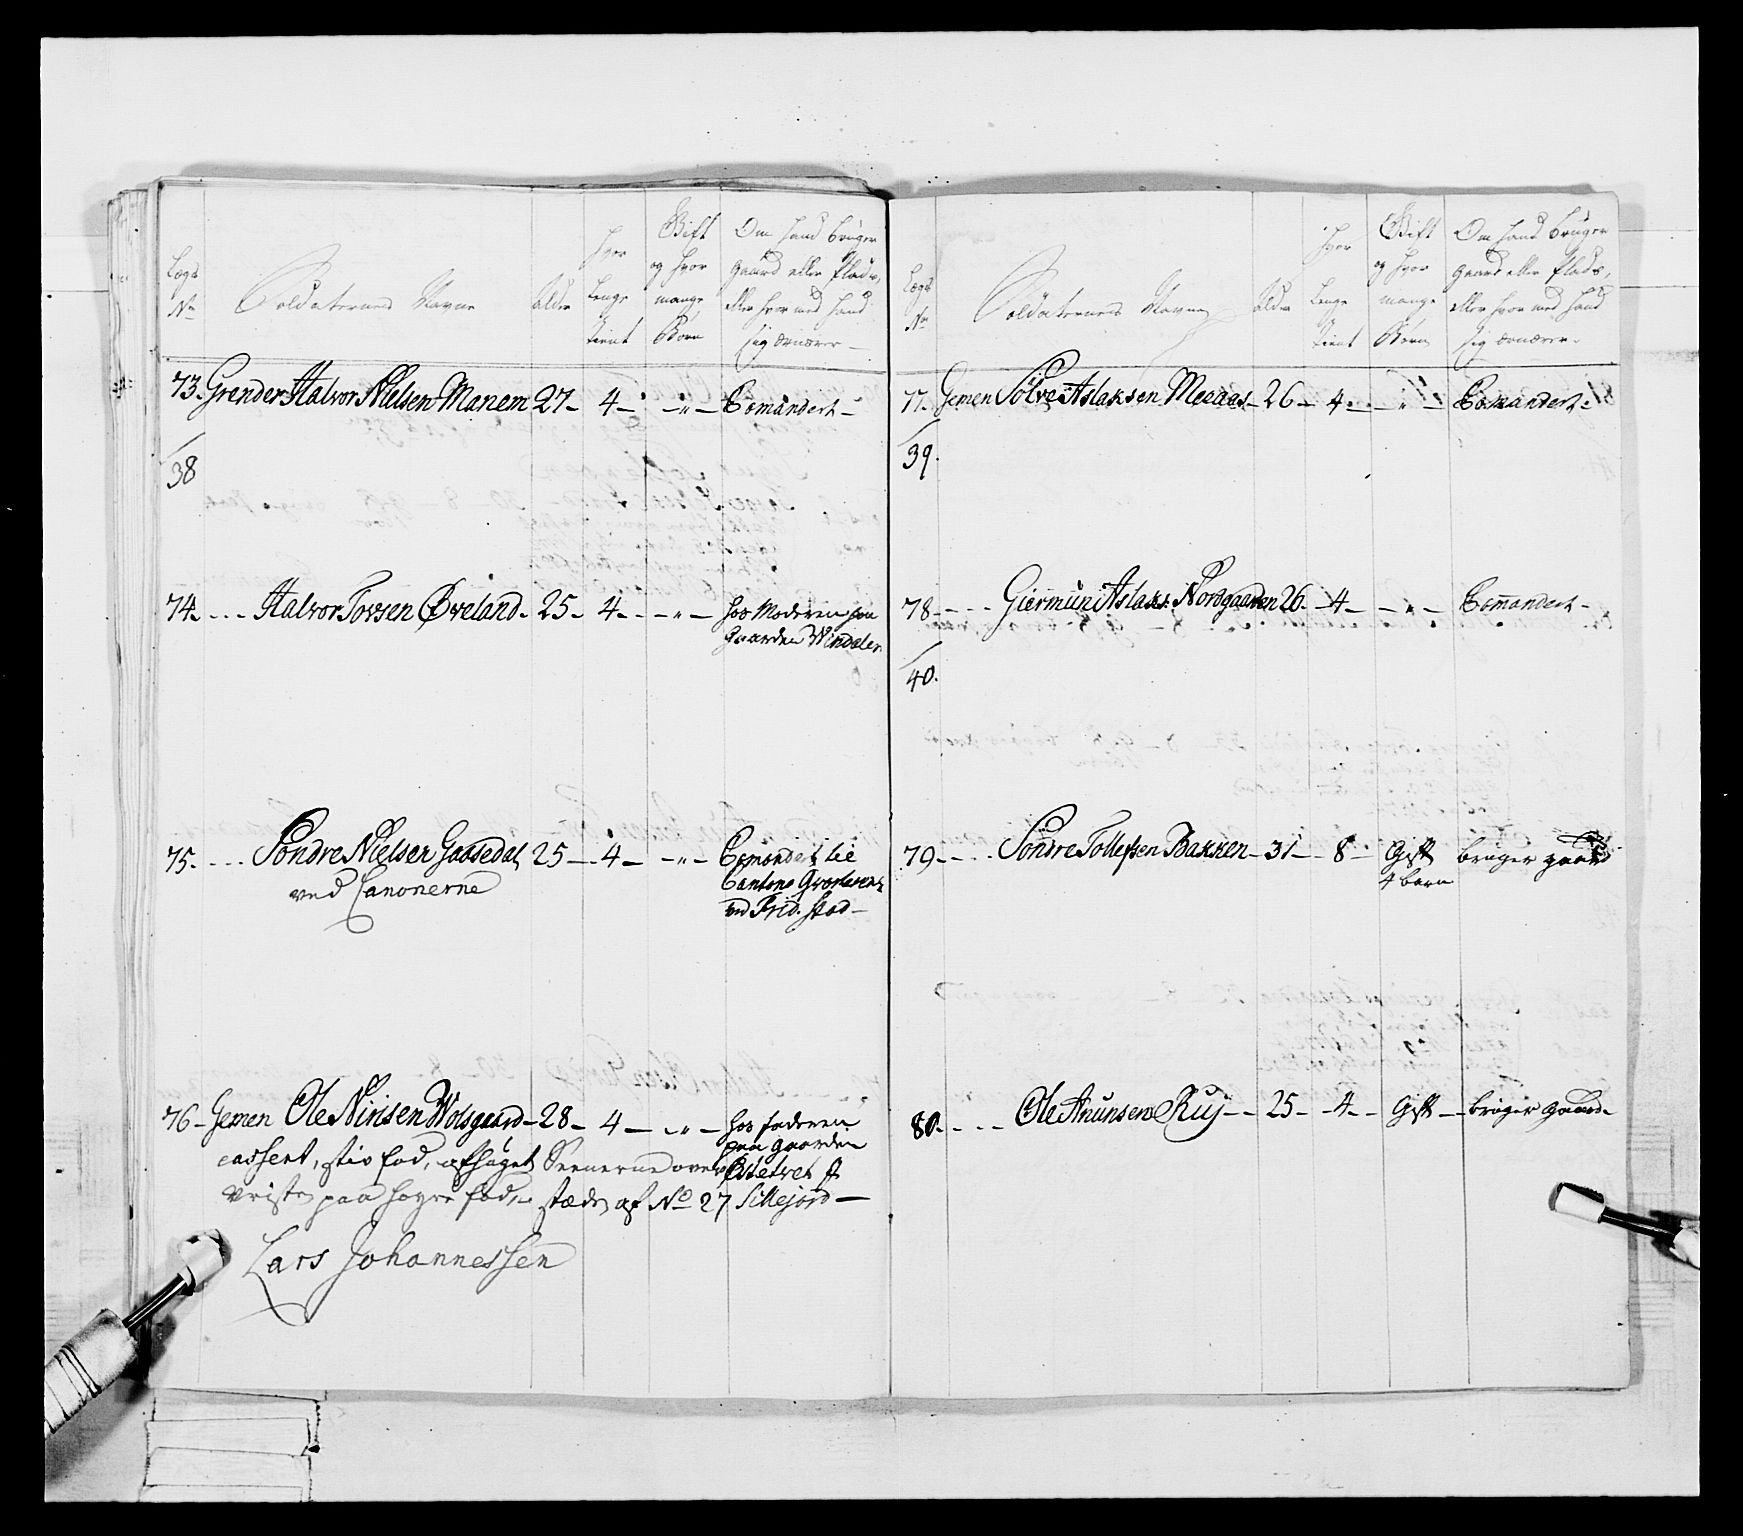 Lægs
No
Soldaternes Navne
Alder
hvor
Lenge
tient
Gift
og hvor
mange
Børn
Om hand bruger
gaard eller Plads,
eller hvor med hand
sig ernærer
73. Grender Halvor Nielsen Manem 27 - 4 - - " - Comandert -
38
74. - - - Halvor Tovsen Øveland - 25 - 4 - - " - hos Moderen paa
Gaarden Windalen
75. - - - Søndre Nielsen Gaasedal 25 - 4 - - " - Comandert
ved Canonerne
ved Frid. stad -
76 - Gemen Ole Nirisen Wolsgaard - 28 - 4 - - " - hos faderen
paa gaarden
cassert, stiv fod, afhuget Seenerne over
Vristen paa høyre fod, - stæden af No 27 Sillejord -
Lars Johannessen
Lægs
No
Soldaternes Navne
Alder
hvor
Lenge
tient
Gift
og hvor
mange
Børn
Om hand bruger
gaard eller Plads,
eller hvor med hand
sig ernærer
77. Gemen Sølve Aslaksen Meeaas - 26 - 4 - - " - Comandert -
39.
78 - - - Giermun Aslaks. Nordgaarden 26 - 4 - - " - Comandert -
40.
79 - - - Søndre Tollefsen Bakken - 31 - 8 - Gift bruger gaard
4 born
80. - - - Ole Anunsen Ruj - - 25 - 4 - Gift - bruger Gaard -